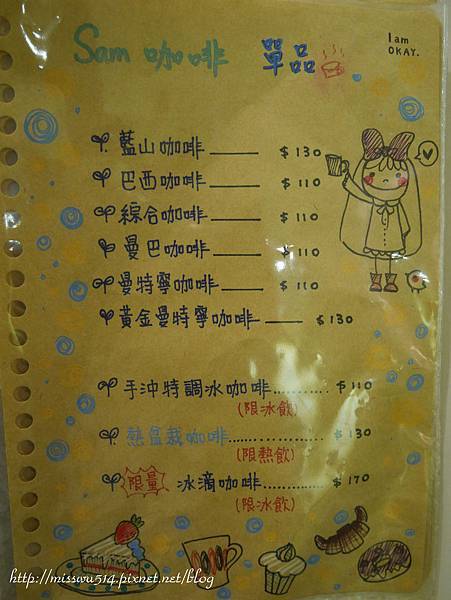 Sam 咖啡 單品
I am
OKAY.
藍山咖啡 $130
巴西咖啡 $110
綜合咖啡 $110
曼巴咖啡 $110
曼特寧咖啡 $110
黃金曼特寧咖啡 $130
手沖特調冰咖啡.......... $110
(限冰飲)
熱盆栽咖啡................ $130
(限熱飲)
限量 冰滴咖啡............ $170
(限冰飲)
http://misswu514.pixnet.net/blog